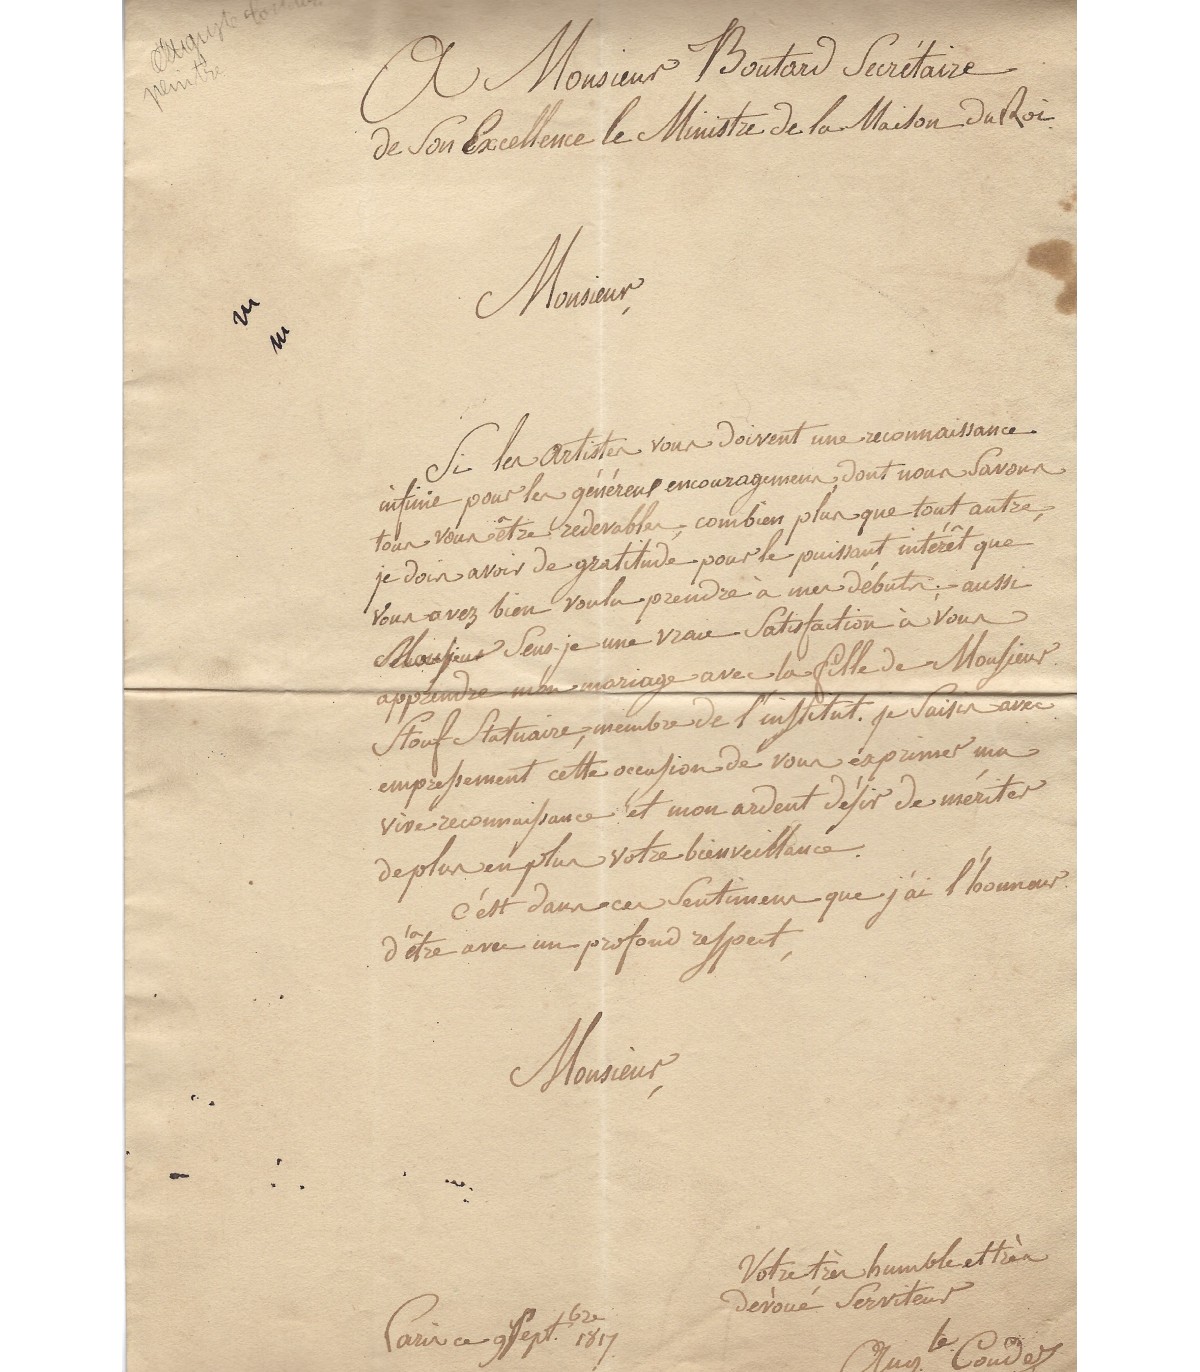 Auguste
peintre
A Monsieur Boutard Secrétaire
de Son Excellence le Ministre de la Maison du Roi.
Monsieur,
Si les artistes vous doivent une reconnaissance
infinie pour les généreux encouragemens, dont nous savons
tous vous être redevables, combien plus que tout autre,
je dois avoir de gratitude pour le puissant intérêt que
vous avez bien voulu prendre à mes débuts; aussi
Monsieur Sens-je une vraie Satisfaction à vous
apprendre mon mariage avec la fille de Monsieur
Stouf Statuaire, membre de l'institut. je saisis avec
empressement cette occasion de vous exprimer ma
vive reconnaissance et mon ardent désir de mériter
de plus en plus votre bienveillance.
C'est dans ces Sentimens que j'ai l'honneur
d'être avec un profond respect,
Monsieur,
Votre très humble et très
dévoué Serviteur
Paris ce 9 Sept.bre 1817
Aug.te Couder